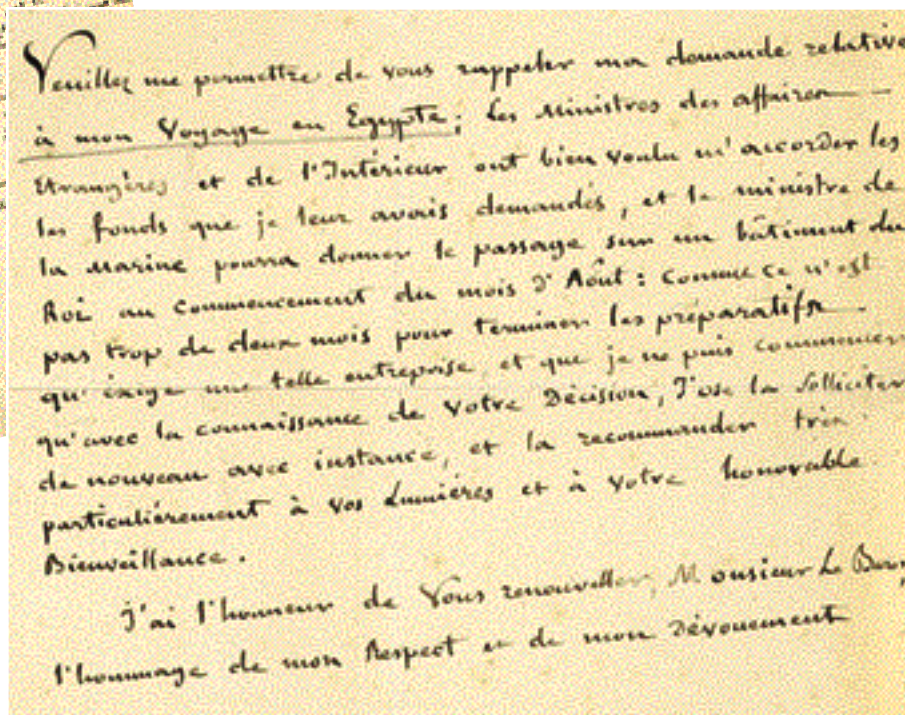 Veuillez me permettre de vous rappeler ma demande relative
à mon Voyage en Egypte; Les Ministres des affaires —
Etrangères et de l'Intérieur ont bien voulu m'accorder les
les fonds que je leur avais demandés, et le ministre de
la Marine pourra donner le passage sur un bâtiment du
Roi au Commencement du mois d'Aout: Comme Ce n'est
pas trop de deux mois pour terminer les préparatifs
qu'éxige une telle entreprise, et que je ne puis commencer
qu'avec la connaissance de Votre Décision, J'ose la Solliciter
de nouveau avec instance, et la recommander très
particulièrement à Vos Lumières et à Votre honorable
Bienveillance.
J'ai l'honneur de Vous renouveller, Monsieur Le
l'hommage de mon Respect et de mon Dévouement